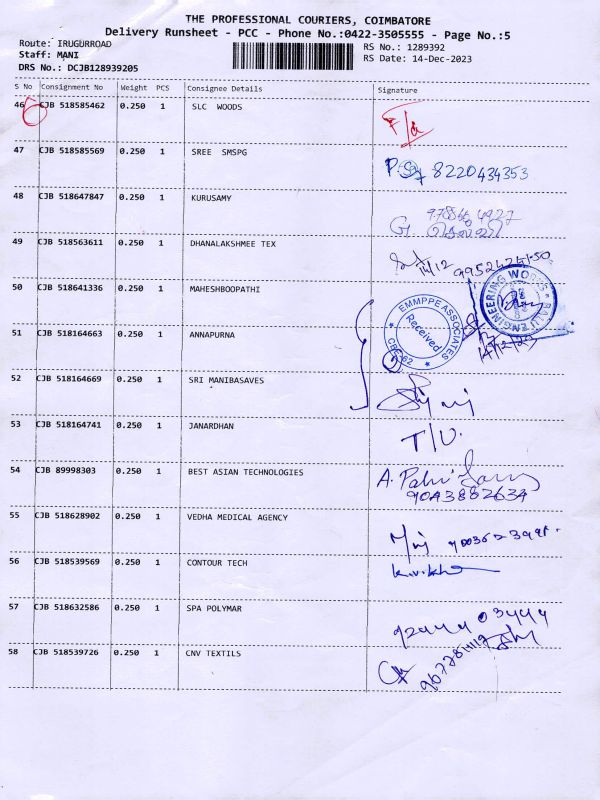 THE PROFESSIONAL COURIERS, COIMBATORE
Delivery Runsheet - PCC - Phone No.:0422-3505555 - Page No.:5
Route: IRUGURROAD
RS No.: 1289392
Staff: MANI
RS Date: 14-Dec-2023
DRS No.: DCJB128939205
S No Consignment No Weight PCS Consignee Details Signature
46 CJB 518585462 0.250 1 SLC WOODS
47 CJB 518585569 0.250 1 SREE SMSPG 8220434353
48 CJB 518647847 0.250 1 KURUSAMY
49 CJB 518563611 0.250 1 DHANALAKSHMEE TEX 14/12
50 CJB 518641336 0.250 1 MAHESHBOOPATHI
EMMPPE ASSOCIATES Received
ENGINEERING WORKS
14/12/23
51 CJB 518164663 0.250 1 ANNAPURNA
52 CJB 518164669 0.250 1 SRI MANIBASAVES
53 CJB 518164741 0.250 1 JANARDHAN T/U.
54 CJB 89998303 0.250 1 BEST ASIAN TECHNOLOGIES
9043882634
55 CJB 518628902 0.250 1 VEDHA MEDICAL AGENCY
56 CJB 518539569 0.250 1 CONTOUR TECH
57 CJB 518632586 0.250 1 SPA POLYMAR
58 CJB 518539726 0.250 1 CNV TEXTILS